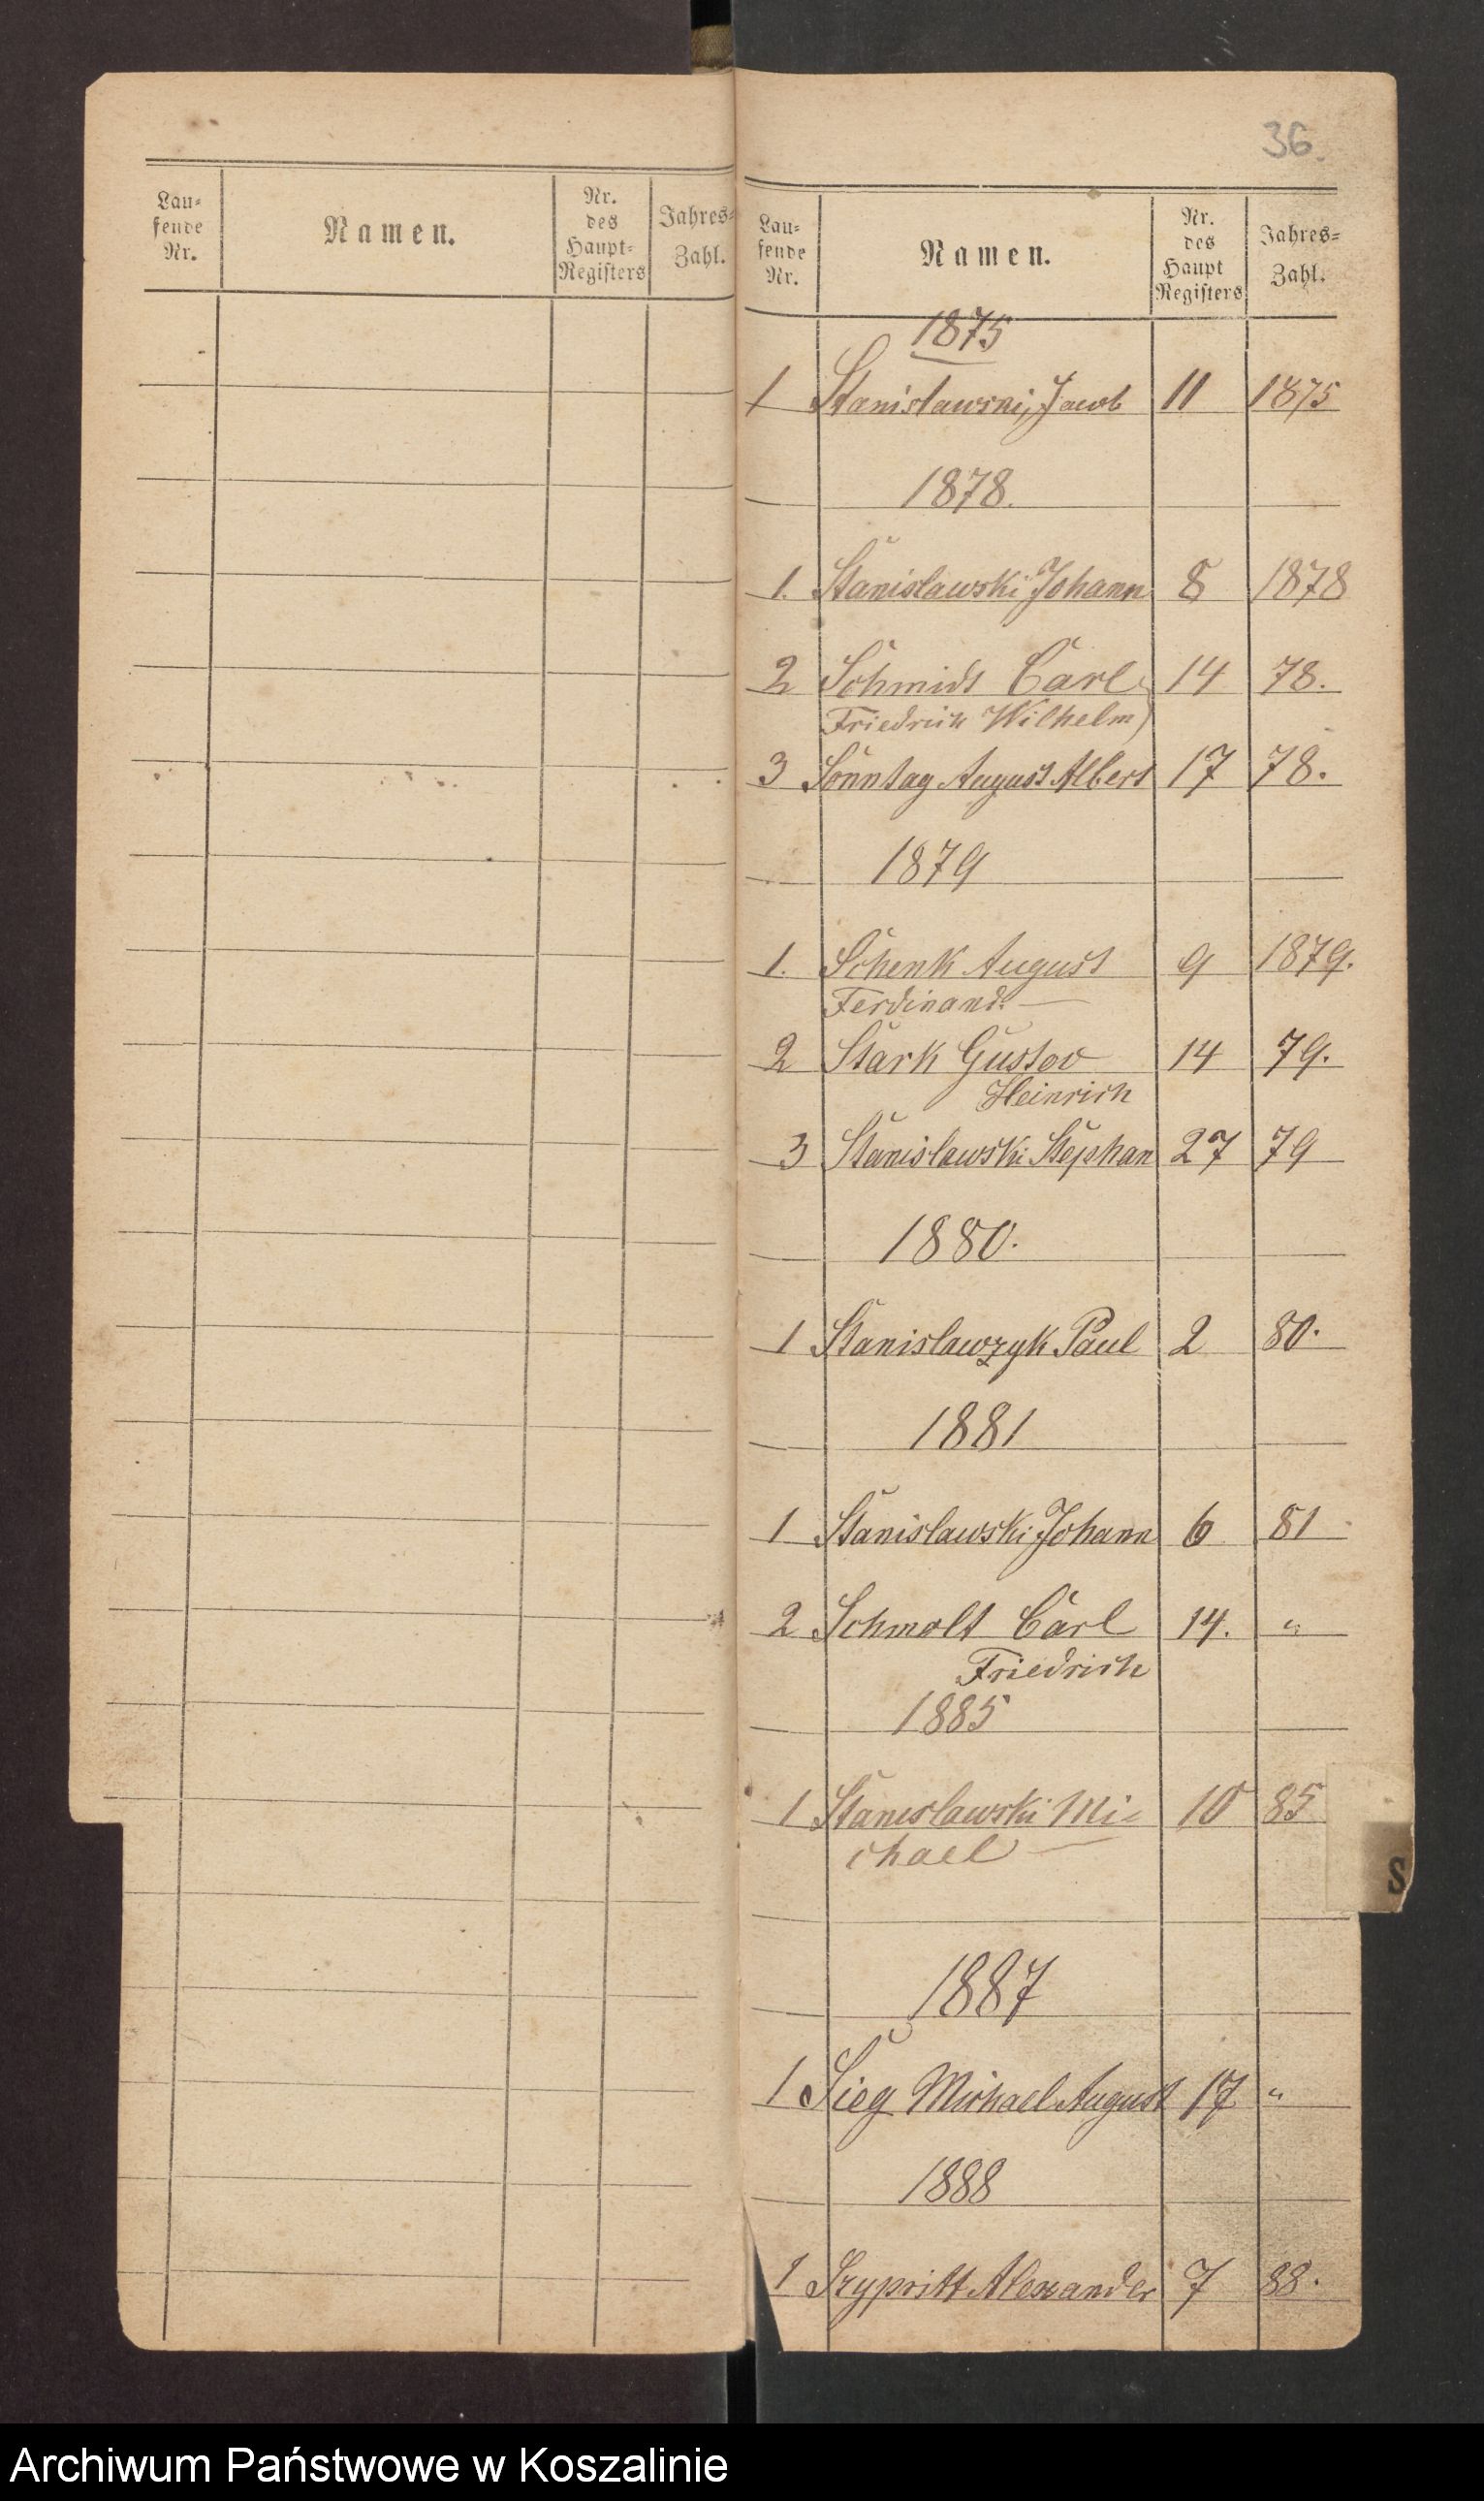 36.
Lau-
fende
Nr.
Namen.
Nr.
des
Haupt-
Registers
Jahres-
Zahl.
Lau-
fende
Nr.
Namen.
Nr.
des
Haupt
Registers
Jahres-
Zahl.
1875
1 Stanislawski, Jacob 11 1875
1878.
1. Stanislawski Johann 8 1878
2 Schmidt Carl 14 78.
Friedrich Wilhelm)
3 Sonntag August Albert 17 78.
1879
1. Schenk August 9 1879.
Ferdinand.
2 Stark Gustav 14 79.
Heinrich
3 Stanislawski Stephan 27 79
1880.
1 Stanislawzyk Paul 2 80.
1881
1 Stanislawski Johann 6 81
2 Schmolt Carl 14. "
Friedrich
1885
1 Stanislawski Mi- 10 85
chael
S
1887
1 Sieg Michael August 17 "
1888
1 Szypritt Alexander 7 88.
Archiwum Państwowe w Koszalinie